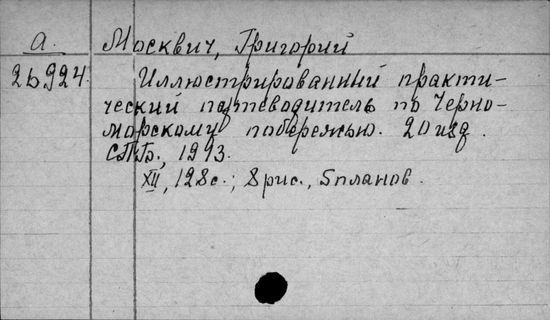 а. Москвич, Григорий
26924. Иллюстрированный практи-
ческий путеводитель по Черно-
морскому побережью. 20 изд.
СПБ., 1913.
XII, 128 с.; 8 рис., 5 планов.